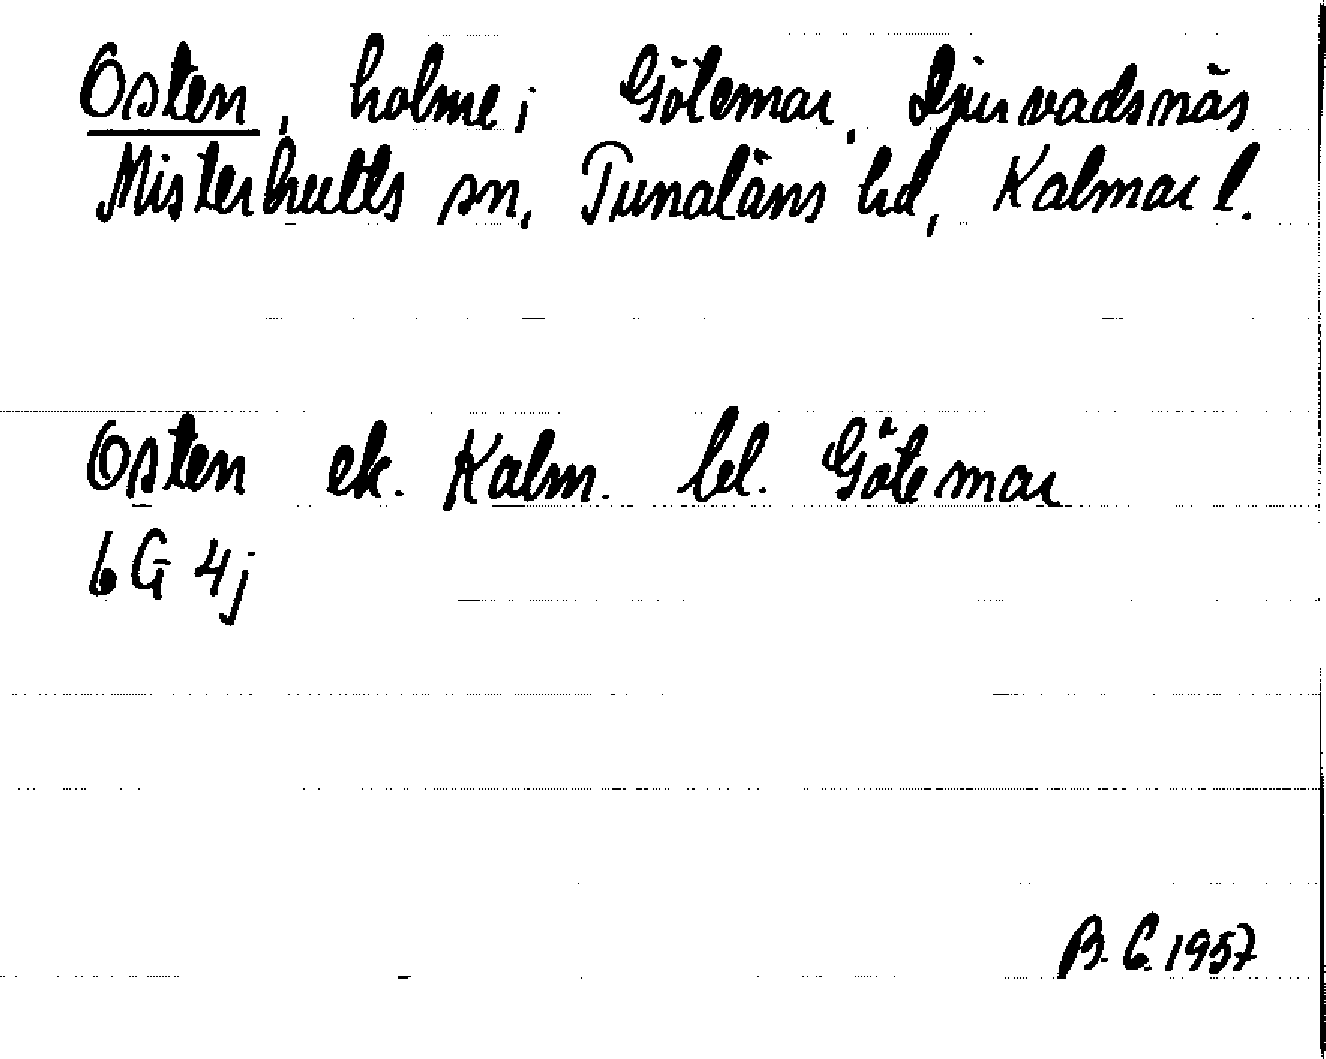 Osten, holme i Götemar, Djurvadsnäs
Misterhults sn, Tunaläns hd, Kalmar l.
Osten ek. Kalm. bl. Götemar
6G 4j
B. G. 1957